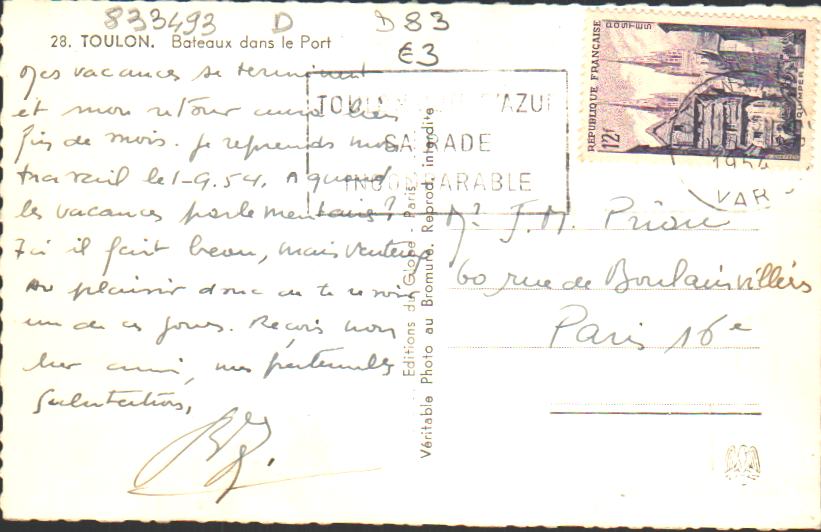 833493 D D 83
€3
28. TOULON. Bateaux dans le Port
Mes vacances se terminent
et mon retour aura lieu
fin de mois. Je reprends mon
travail le 1-9.54. A quand
les vacances parlementaires?
Ici il fait beau, mais venteux
Au plaisir donc de te revoir
un de ces jours. Reçois mon
cher ami, mes fraternelles
salutations,
TOULON D'AZUR
SA RADE
INCOMPARABLE
Editions du Globe - Paris
Véritable Photo au Bromure. Reprod. interdite
REPUBLIQUE FRANÇAISE
POSTES
12f
QUIMPER
1954
VAR
Mr J.M. Priou
60 rue de Boulainvilliers
Paris 16e